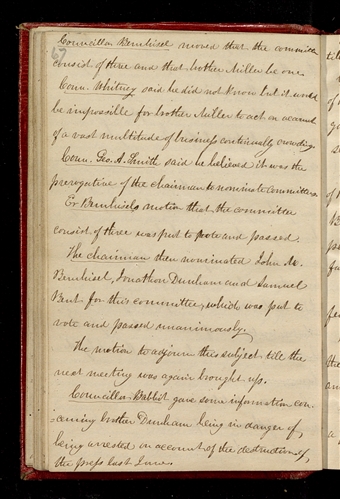 Councillor Bernhisel moved that the committee
consist of three and that brother Miller be one.
Coun. Whitney said he did not know but it would
be impossible for brother Miller to act on account
of a vast multitude of business continually crowding.
Coun. Geo. A. Smith said he believed it was the
prerogative of the chairman to nominate committees.
Er Bernhisels motion that the committee
consist of three was put to vote and passed.
The chairman then nominated John M.
Bernhisel, Jonathan Dunham and Samuel
Bent for this committee, which was put to
vote and passed unanimously.
The motion to adjourn this subject till the
next meeting was again brought up.
Councillor Babbit gave some information con-
-cerning brother Dunham being in danger of
being arrested on account of the destruction of
the press last June.